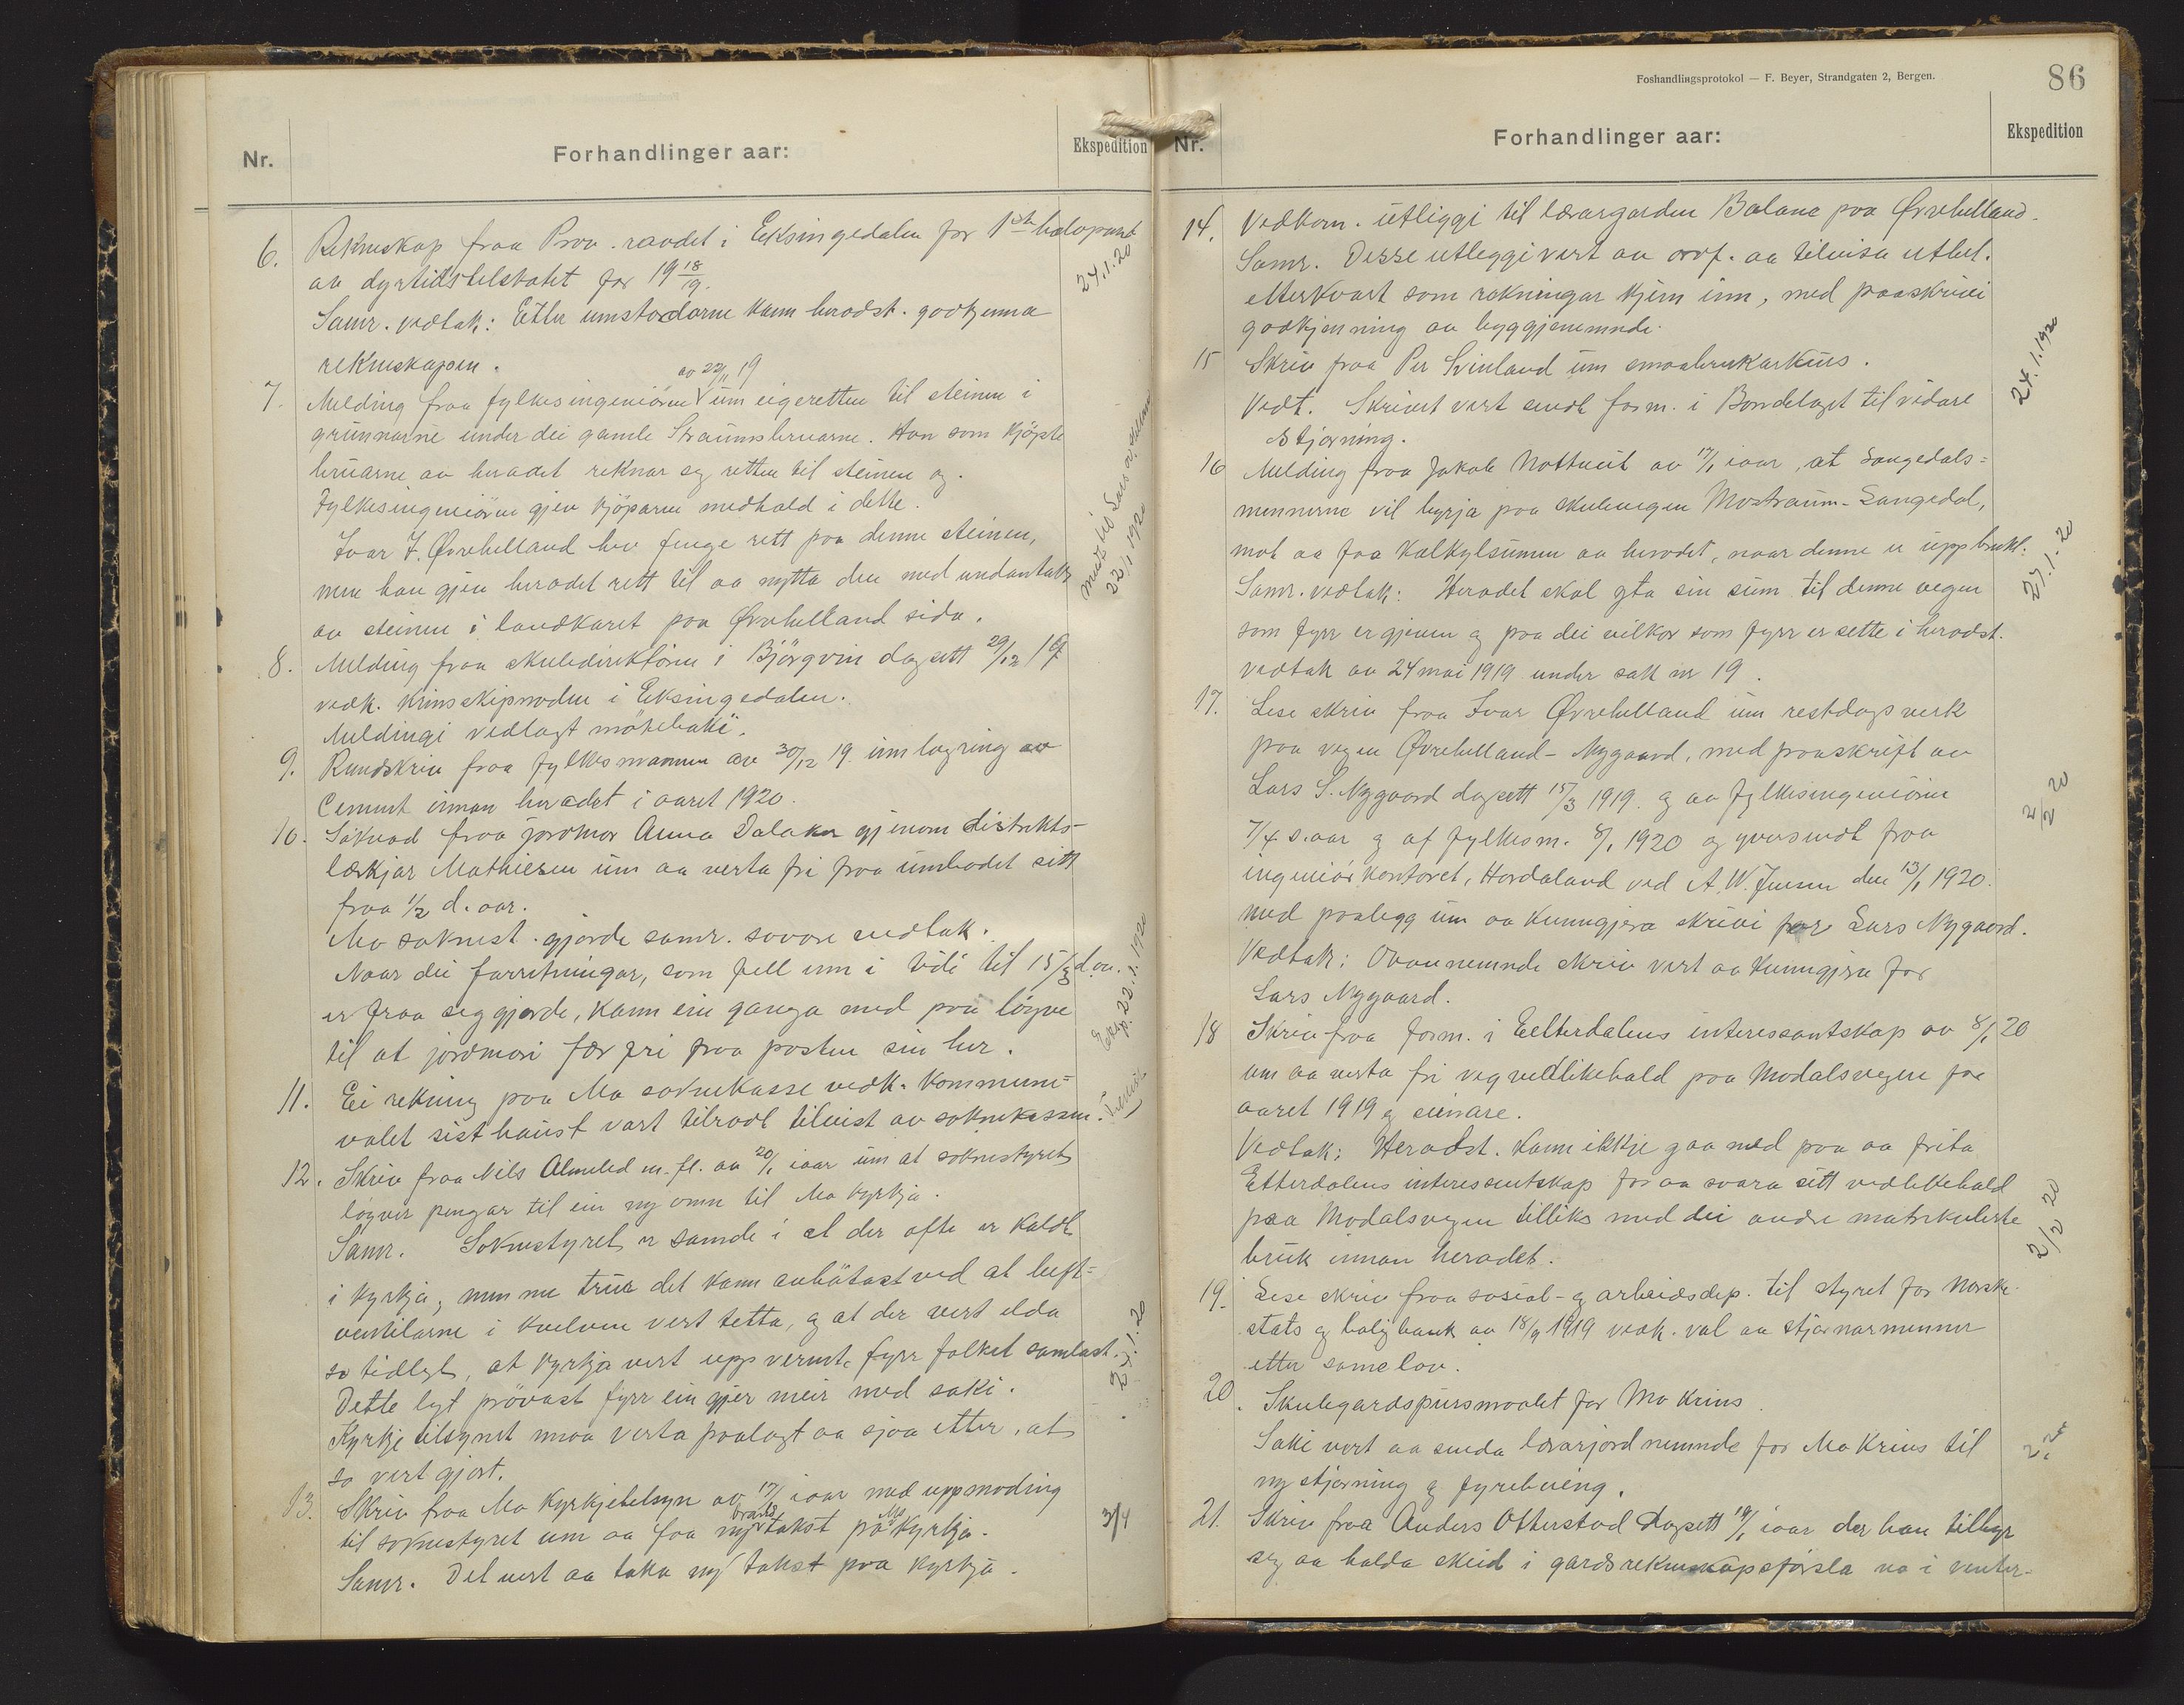 Nr.
Forhandlinger aar:
Ekspedition
6. Rekneskap fraa Prov. raadet i Eksingedalen for 1ste halvpart
av dyrtidstilskotet for 19 18/19.
24.1.20
Samr. vedtak: Etter umstødorne kann heradst. godkjenna
rekneskapen.
av 22/11 19
7. Melding fraa fylkesingeniören um eigeretten til steinen i
grunnarne under dei gamle Straumsbruarne. Han som kjöpte
bruarne av heradet reknar seg retten til steinen og.
Fylkesingeniören gjev kjöparen medhald i dette.
Ivar J. Øvrehelland hev fenge rett paa denne steinen,
men han gjev heradet rett til aa nytta den med undantak
av steinen i landkaret paa Øvrehelland sida.
22/1 1920
8. Melding fraa skuledirektören i Björgvin dagsett 29/12 19
vedk. krinsskipnaden i Eksingedalen.
Meldingi vedlagt mötebaki.
9. Rundskriv fraa fylkesmannen av 30/12 19. um lagring av
Cement innan heradet i aaret 1920.
10. Söknad fraa jordmor Anna Dalaker gjenom distrikts-
lækjar Mathiesen um aa verta fri fraa umbodet sitt
fraa 1/2 d. aar.
Mo soknest. gjorde samr. sovore vedtak.
Naar dei forretningar, som fell inn i tidi til 15/3 d. aa.
er fraa seg gjorde, kann ein ganga med paa löyve
til at jordmori fær fri fraa posten sin her.
Eksp. 22.1.1920
11. Ei rekning paa Mo soknekasse vedk. kommune=
valet sist haust vart tilraadt tilvist av soknekassen.
12. Skriv fraa Nils Almelid m. fl. av 20/1 iaar um at soknestyret
löyver pengar til ein ny omn til Mo kyrkja.
Samr. Soknestyret er samde i at der ofte er kaldt
i kyrkja, men me trur det kann anbötast ved at luft=
ventilarne i kvelven vert tetta, og at der vert elda
so tidlegt, at kyrkja vert uppvermt fyrr folket samlast.
Dette lyt prövast fyrr ein gjer meir med saki.
Kyrkje tilsynet maa verta paalagt aa sjaa etter, at
so vert gjort.
27.1.20
13. Skriv fraa Mo Kyrkjetilsyn av 17/1 iaar med uppmoding
til soknestyret um aa faa ny brand takst på Mo kyrkja.
Samr. Det vert aa taka ny takst paa kyrkja.
3/4
Foshandlingsprotokol — F. Beyer, Strandgaten 2, Bergen.
86
Nr.
Forhandlinger aar:
Ekspedition
14. Vedkom. utliggi til lærargarden Balane paa Øvrehelland.
Samr. Desse utleggi vert av ordf. aa tilvisa utbet.
etterkvart som rekningar kjem inn, med paaskrivi
godkjenning av byggjenemnde.
15 Skriv fraa Per Svinland um smaabrukarkurs.
Vedt. Skrivet vert sendt form. i Bondelaget til vidare
stjorning.
24.1.1920
16 Melding fraa Jakob Nottveit av 17/1 iaar, at Sangedals=
mennerne vil byrja paa skulevegen Mostraum-Sangedal,
mot aa faa kalkylsumen av heradet, naar denne er uppbrukt.
Samr. vedtak: Heradet skal yta sin sum til denne vegen
som fyrr er gjeven og paa dei vilkor som fyrr er sette i heradst.
vedtak av 24 mai 1919 under sak nr 19.
27.1.20
17. Lese skriv fraa Ivar Øvrehelland um restdagsverk
paa vegen Øvrehelland - Nygaard, med paaskrift av
Lars S. Nygaard dagsett 15/3 1919. og av fylkesingeniören
7/4 s. aar og af fylkesm. 8/1 1920 og yversendt fraa
ingeniörkontoret, Hordaland ved A. W. Jensen den 13/1 1920.
med paalegg um aa kunngjera skrivi for Lars Nygaard.
Vedtak: Ovannemnde skriv vert aa kunngjera for
Lars Nygaard.
2/2 20
18 Skriv fraa form. i Eelterdalens interessantskap av 8/1 20
um aa verta fri veg vedlikehald paa Modalsvegen for
aaret 1919 og seinare.
Vedtak: Heradst. kann ikkje gaa med paa aa frita
Etterdalens interessentskap for aa svara sitt vedlikehald
paa Modalsvegen tilliks med dei andre matrikulerte
bruk innan heradet.
2/2 20
19. Lese skriv fraa sosial- og arbeidsdep. til styret for Norske
stats og boligbank av 18/9 1919 vedk. val av stjornarmenner
etter same lov.
20. Skulegardspursmaalet for Mo krins.
Saki vert aa senda lærarjordnemnde for Mo Krins til
ny stjorning og fyrebuing.
21. Skriv fraa Anders Otterstad dagsett 19/1 iaar der han tilbyr
seg aa halda skeid i gardsrekneskapsförsla no i vinter.